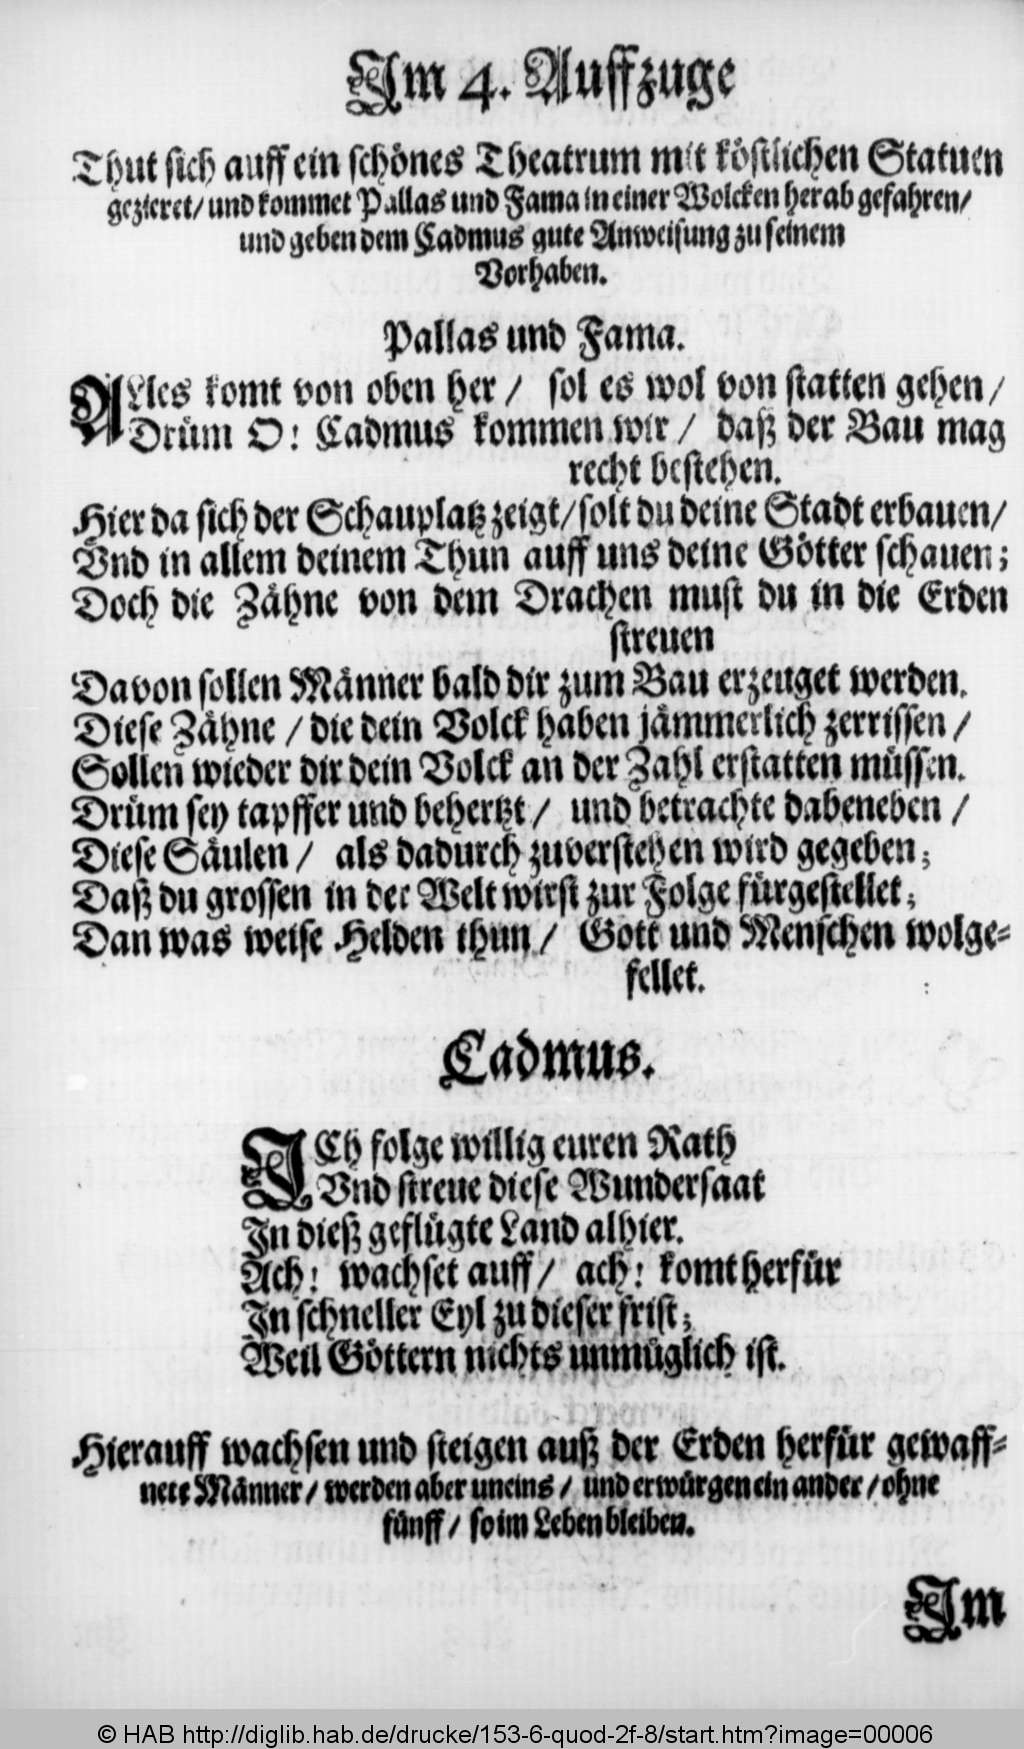 Im 4. Auffzuge
Thut sich auff ein schönes Theatrum mit köstlichen Statuen
gezieret/ und kommet Pallas und Fama in einer Wolcken herab gefahren/
und geben dem Cadmus gute Anweisung zu seinem
Vorhaben.
Pallas und Fama.
ALles komt von oben her / sol es wol von statten gehen /
Drüm O! Cadmus kommen wir / daß der Bau mag
recht bestehen.
Hier da sich der Schauplatz zeigt/ solt du deine Stadt erbauen/
Vnd in allem deinem Thun auff uns deine Götter schauen;
Doch die Zähne von dem Drachen must du in die Erden
streuen
Davon sollen Männer bald dir zum Bau erzeuget werden.
Diese Zähne / die dein Volck haben jämmerlich zerrissen /
Sollen wieder dir dein Volck an der Zahl erstatten müssen.
Drüm sey tapffer und behertzt / und betrachte dabeneben /
Diese Säulen / als dadurch zuverstehen wird gegeben;
Daß du grossen in der Welt wirst zur Folge fürgestellet;
Dan was weise Helden thun / Gott und Menschen wolge-
fellet.
Cadmus.
ICh folge willig euren Rath
Vnd streue diese Wundersaat
In dieß geflügte Land alhier.
Ach! wachset auff / ach! komt herfür
In schneller Eyl zu dieser frist;
Weil Göttern nichts unmüglich ist.
Hierauff wachsen und steigen auß der Erden herfür gewaff-
nete Männer / werden aber uneins / und erwürgen ein ander / ohne
fünff / so im Leben bleiben.
Im
© HAB http://diglib.hab.de/drucke/153-6-quod-2f-8/start.htm?image=00006